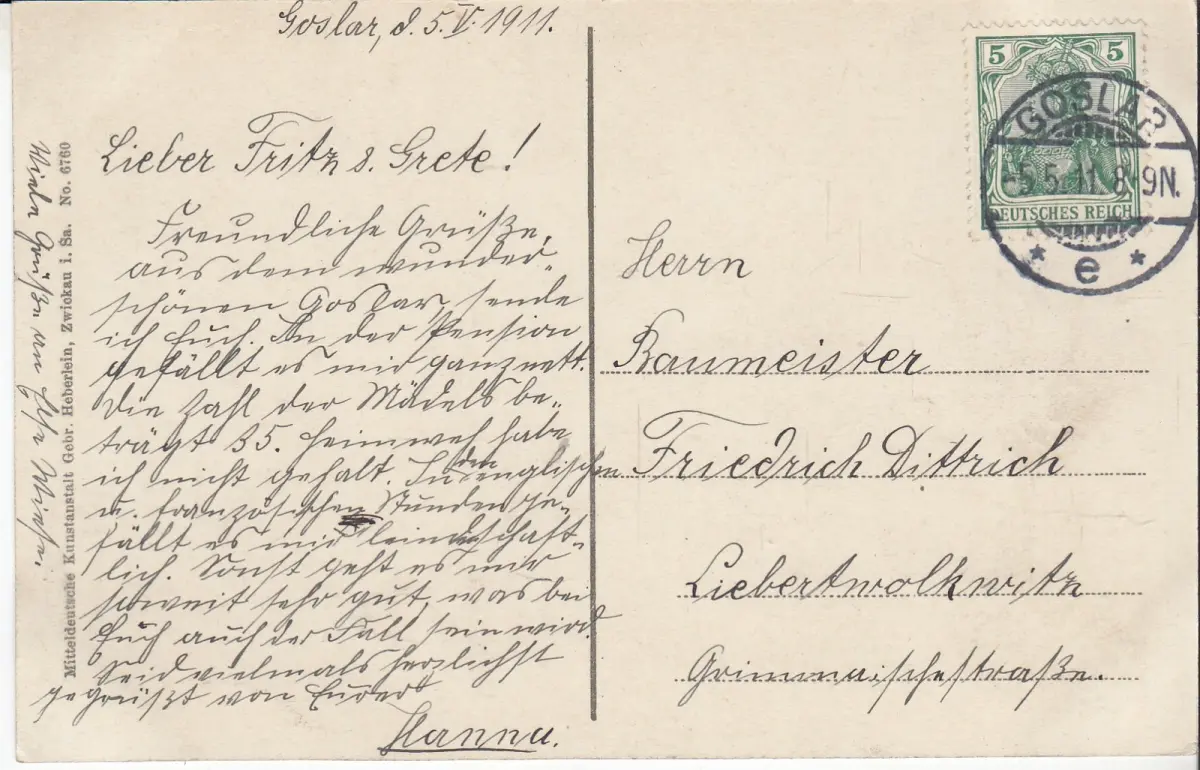 Goslar, d. 5.V.1911.
Lieber Fritz & Grete!
Freundliche Grüße,
aus dem wunder-
schönen Goslar, sende
ich Euch. In der Pension
gefällt es mir ganz nett.
Die Zahl der Mädels be-
trägt 35. Heimweh habe
ich nicht gehabt. In den englischen
u. französischen Stunden ge-
fällt es mir leidenschaft-
lich. Sonst geht es mir
soweit sehr gut, was bei
Euch auch der Fall sein wird.
Seid vielmals herzlichst
gegrüßt von Eurer
Hanna.
Viele Grüße an
Mitteldeutsche Kunstanstalt Gebr. Heberlein, Zwickau i. Sa. No. 6760
5 5
DEUTSCHES REICH
GOSLAR
-5.5.11.8-9N.
* e *
Herrn
Baumeister
Friedrich Dittrich
Liebertwolkwitz
Grimmaischestraße.